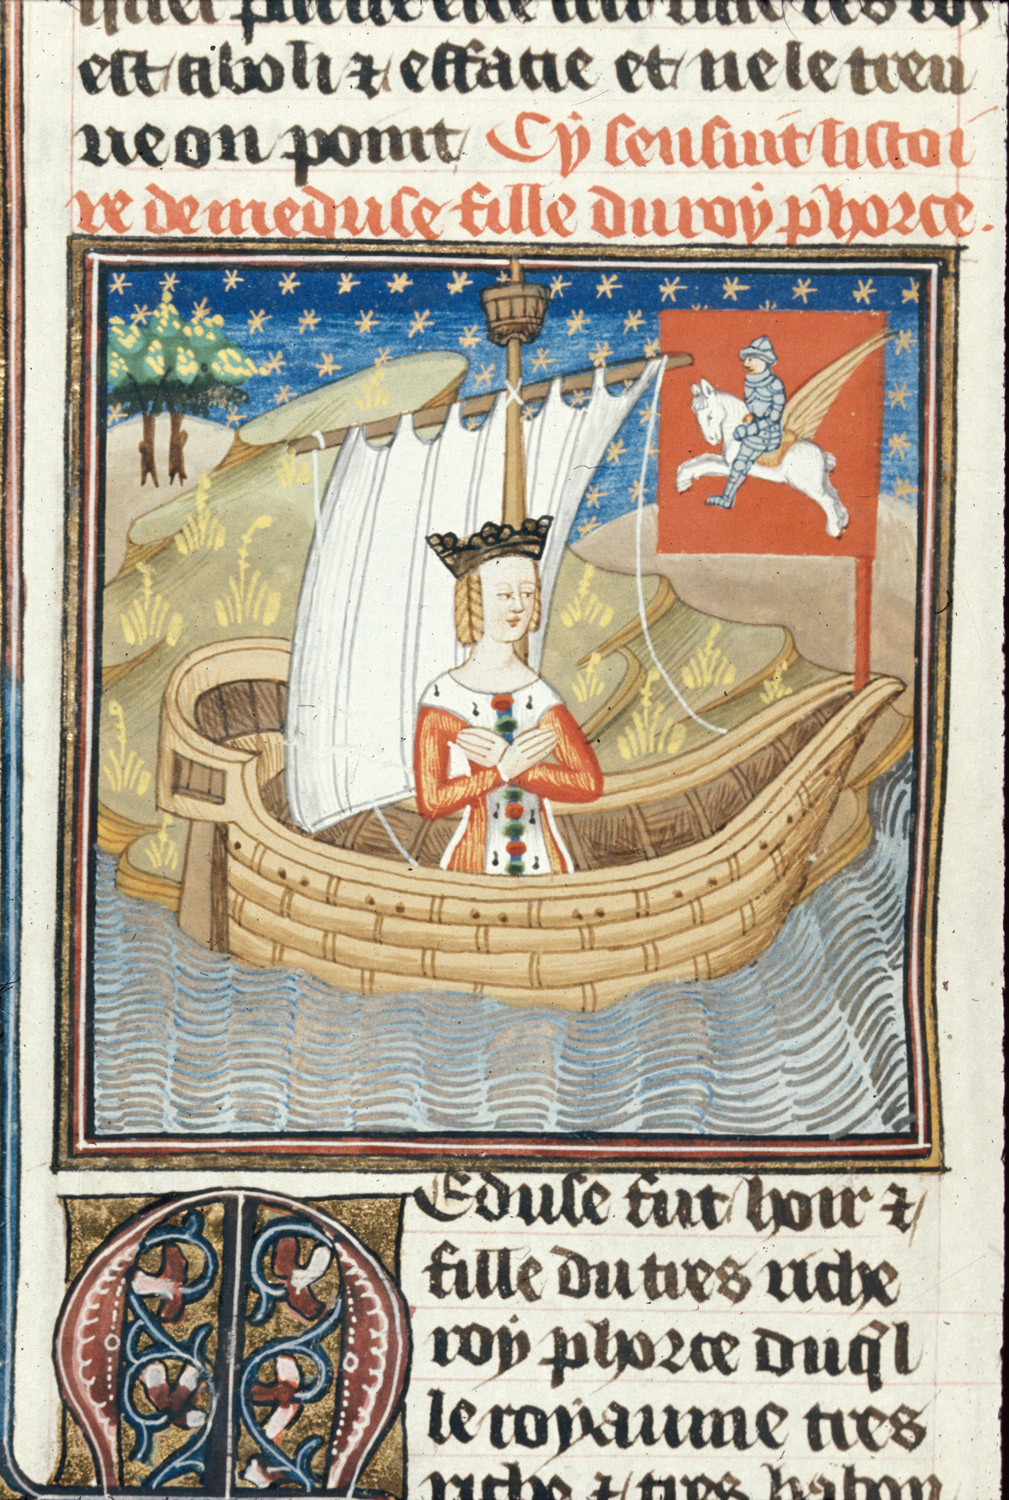 est aboli ⁊ efface et ne le treu
ue on point Cy sensuit listoi
re de meduse fille du roy phorce.
MEduse fut hoir ⁊
fille du tres riche
roy phorce duql
le royaume tres
riche ⁊ tres habon